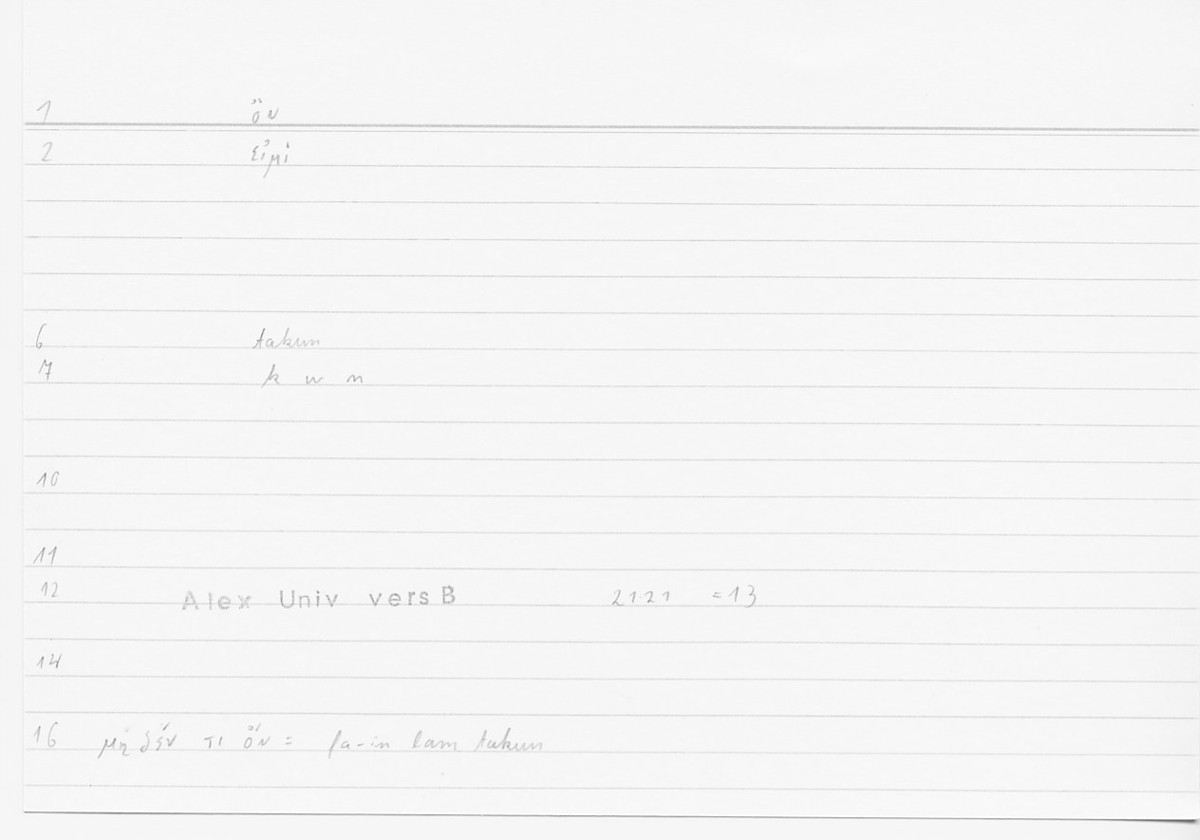 1 ὄν
2 εἰμί
6 takun
7 k w n
10
11
12 Alex Univ vers B 21.21 = 13
14
16 μηδέν τι ὄν = fa-in lam takun